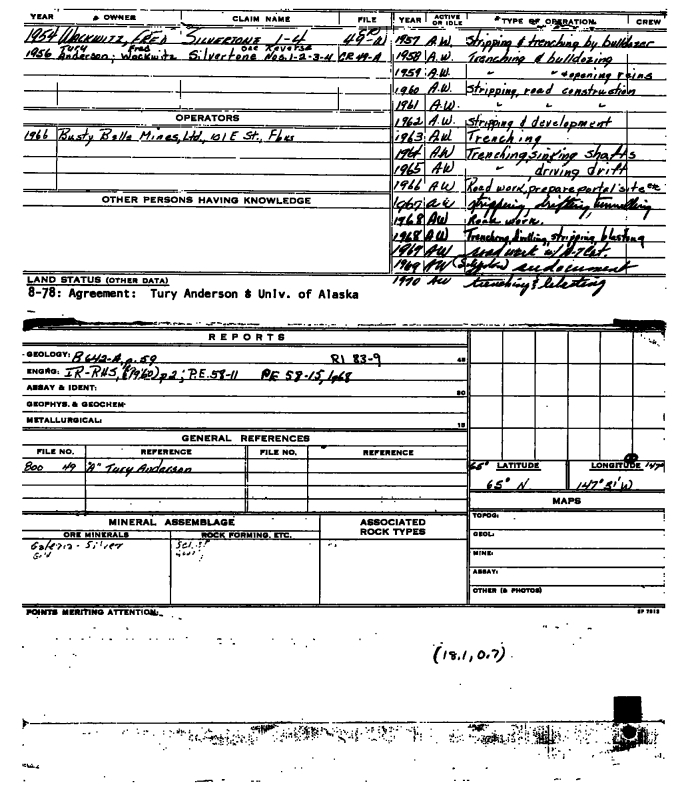 YEAR OWNER CLAIM NAME FILE
1954 Wackwitz, Fred Silvertone 1-4 49-A
1956 Tury Anderson; Fred Wackwitz Silvertone Nos. 1-2-3-4 one Reverse CR 49-A
OPERATORS
1966 Busty Belle Mines, Ltd., 101 E St., Fbks
OTHER PERSONS HAVING KNOWLEDGE
LAND STATUS (OTHER DATA)
8-78: Agreement: Tury Anderson & Univ. of Alaska
YEAR ACTIVE OR IDLE TYPE OF OPERATION CREW
1957 A.W. Stripping & trenching by bulldozer
1958 A.W. Trenching & bulldozing
1959 A.W. " " & opening veins
1960 A.W. Stripping, road construction
1961 A.W. " "
1962 A.W. Stripping & development
1963 A.W. Trenching
1964 AW Trenching, sinking shafts
1965 AW " driving drift
1966 AW Road work, prepare portal site etc
1967 AW stripping, drifting, tunnelling
1968 AW Road work.
1968 AW Trenching, drilling, stripping, blasting
1969 AW road work w/
1969 AW
1970 AW trenching & blasting
REPORTS
GEOLOGY: B 642-A, p. 59 RI 83-9
ENGRG: IR-RHS, (1960) p 2; P.E. 58-11 PE 58-15, 1968
ASSAY & IDENT:
GEOPHYS. & GEOCHEM:
METALLURGICAL:
GENERAL REFERENCES
FILE NO. REFERENCE FILE NO. REFERENCE
800 49 "A" Tury Anderson
MINERAL ASSEMBLAGE ASSOCIATED ROCK TYPES
ORE MINERALS ROCK FORMING, ETC.
Galena - Silver
Gold
65° LATITUDE LONGITUDE 147°
65° N 147° 31' W
MAPS
TOPOG:
GEOL:
MINE:
ASSAY:
OTHER (& PHOTOS)
POINTS MERITING ATTENTION:
(18.1, 0.7)